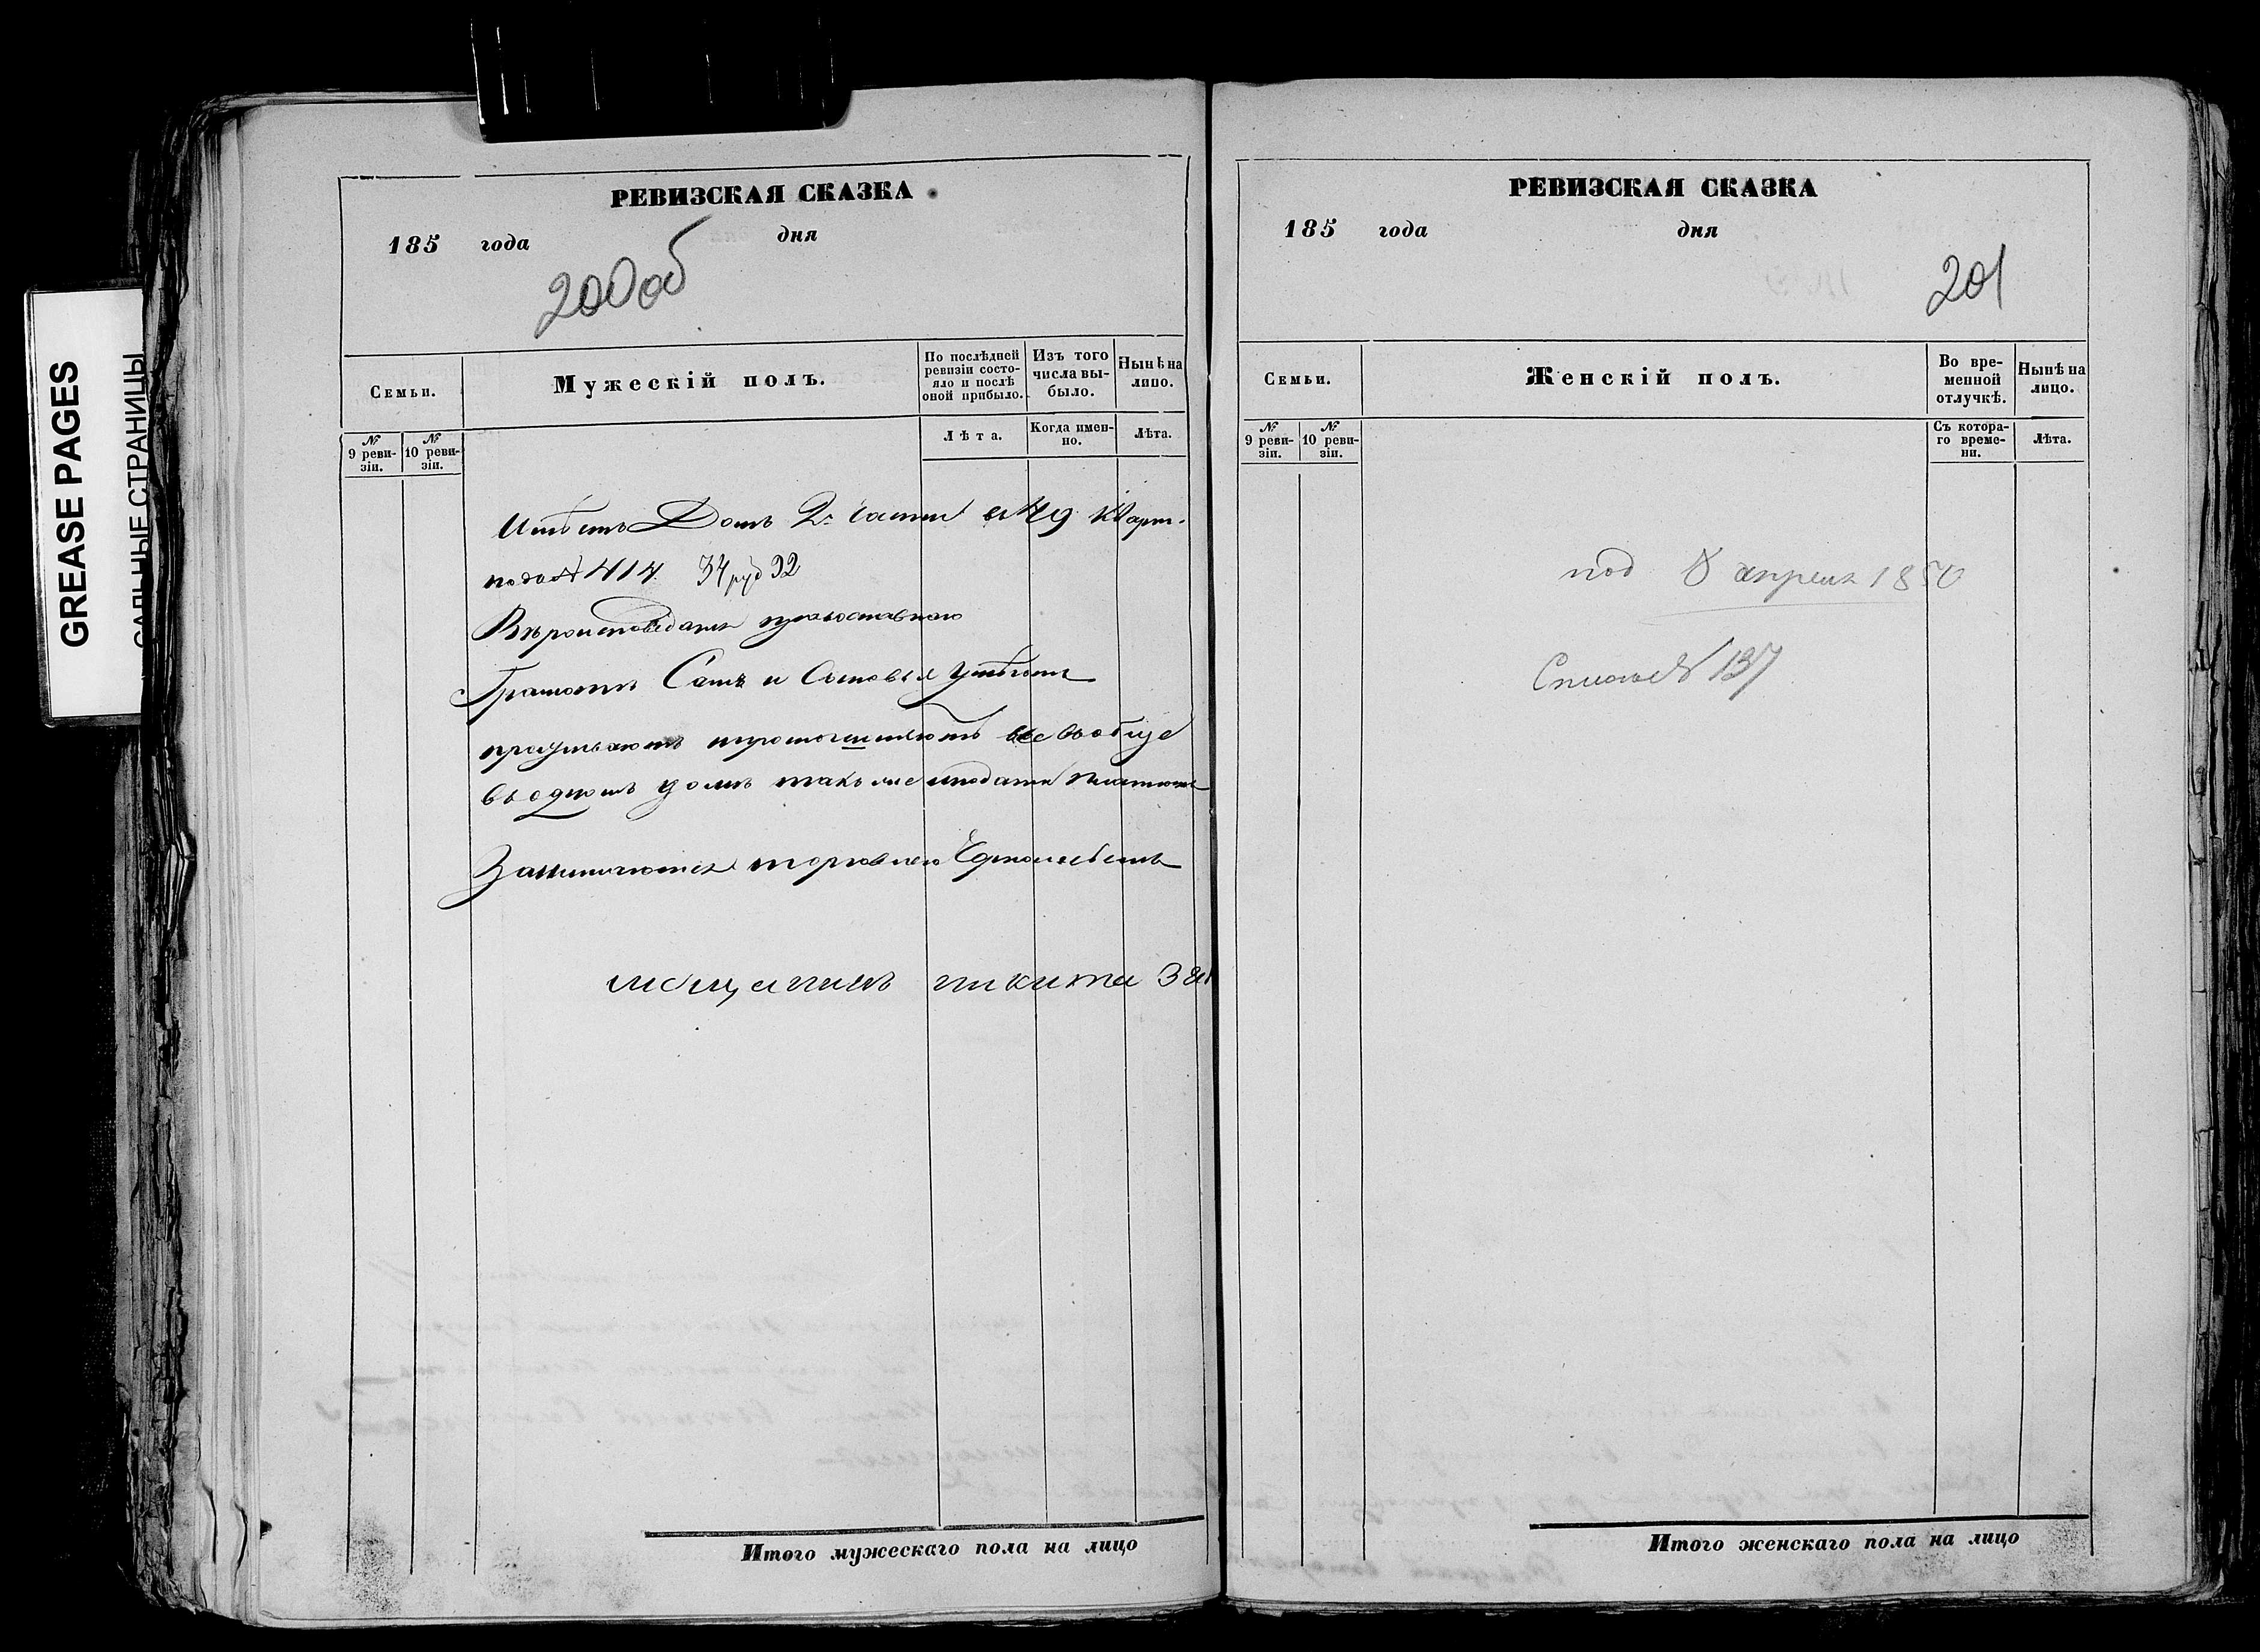 GREASE PAGES
САЛЬНЫЕ СТРАНИЦЫ
РЕВИЗСКАЯ СКАЗКА
185 года дня
200об
Семьи.
Мужескій полъ.
По послѣдней ревизіи состояло и послѣ оной прибыло.
Изъ того числа выбыло.
Нынѣ на лицо.
№ 9 ревизіи.
№ 10 ревизіи.
Лѣта.
Когда именно.
Лѣта.
Имѣетъ Домъ 2й части 49 Кварт.
под № 414 34 руб 92
Вѣроисповедания православнаго
Грамотѣ Самъ и Сыновья умѣютъ
все вообще
въ одномъ домѣ также и подати платютъ
Занимаются торговлею
мещанинъ никита
РЕВИЗСКАЯ СКАЗКА
185 года дня
201
Семьи.
Женскій полъ.
Во временной отлучкѣ.
Нынѣ на лицо.
№ 9 ревизіи.
№ 10 ревизіи.
Съ котораго времени.
Лѣта.
под 8 апреля 1850
№ 137
Итого мужескаго пола на лицо
Итого женскаго пола на лицо